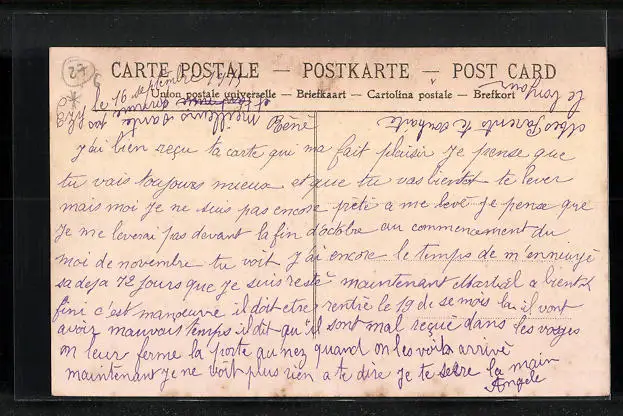 CARTE POSTALE — POSTKARTE — POST CARD
Union postale universelle — Briefkaart — Cartolina postale — Brefkort
le 16 septembre
René
j'ai bien reçu ta carte qui ma fait plaisir je pense que
tu vais toujours mieux et que tu vas bientot te lever
mais moi je ne suis pas encore prete a me levé je pense que
je me leverai pas devant la fin d'octobre au commencement du
moi de novembre tu voit j'ai encore le temps de m'ennuyé
sa deja 72 jours que je suis resté maintenant Marcel a bientot
fini c'est manoeuvre il doit etre rentré le 19 de se mois la il vont
avoir mauvais temps il dit qu'il sont mal reçue dans les vosges
on leur ferme la porte au nez quand on les voit arrivé
maintenant je ne voit plus rien a te dire je te serre la main
Angele
Mes Parents te souhaite
le bonjour
meilleure santé